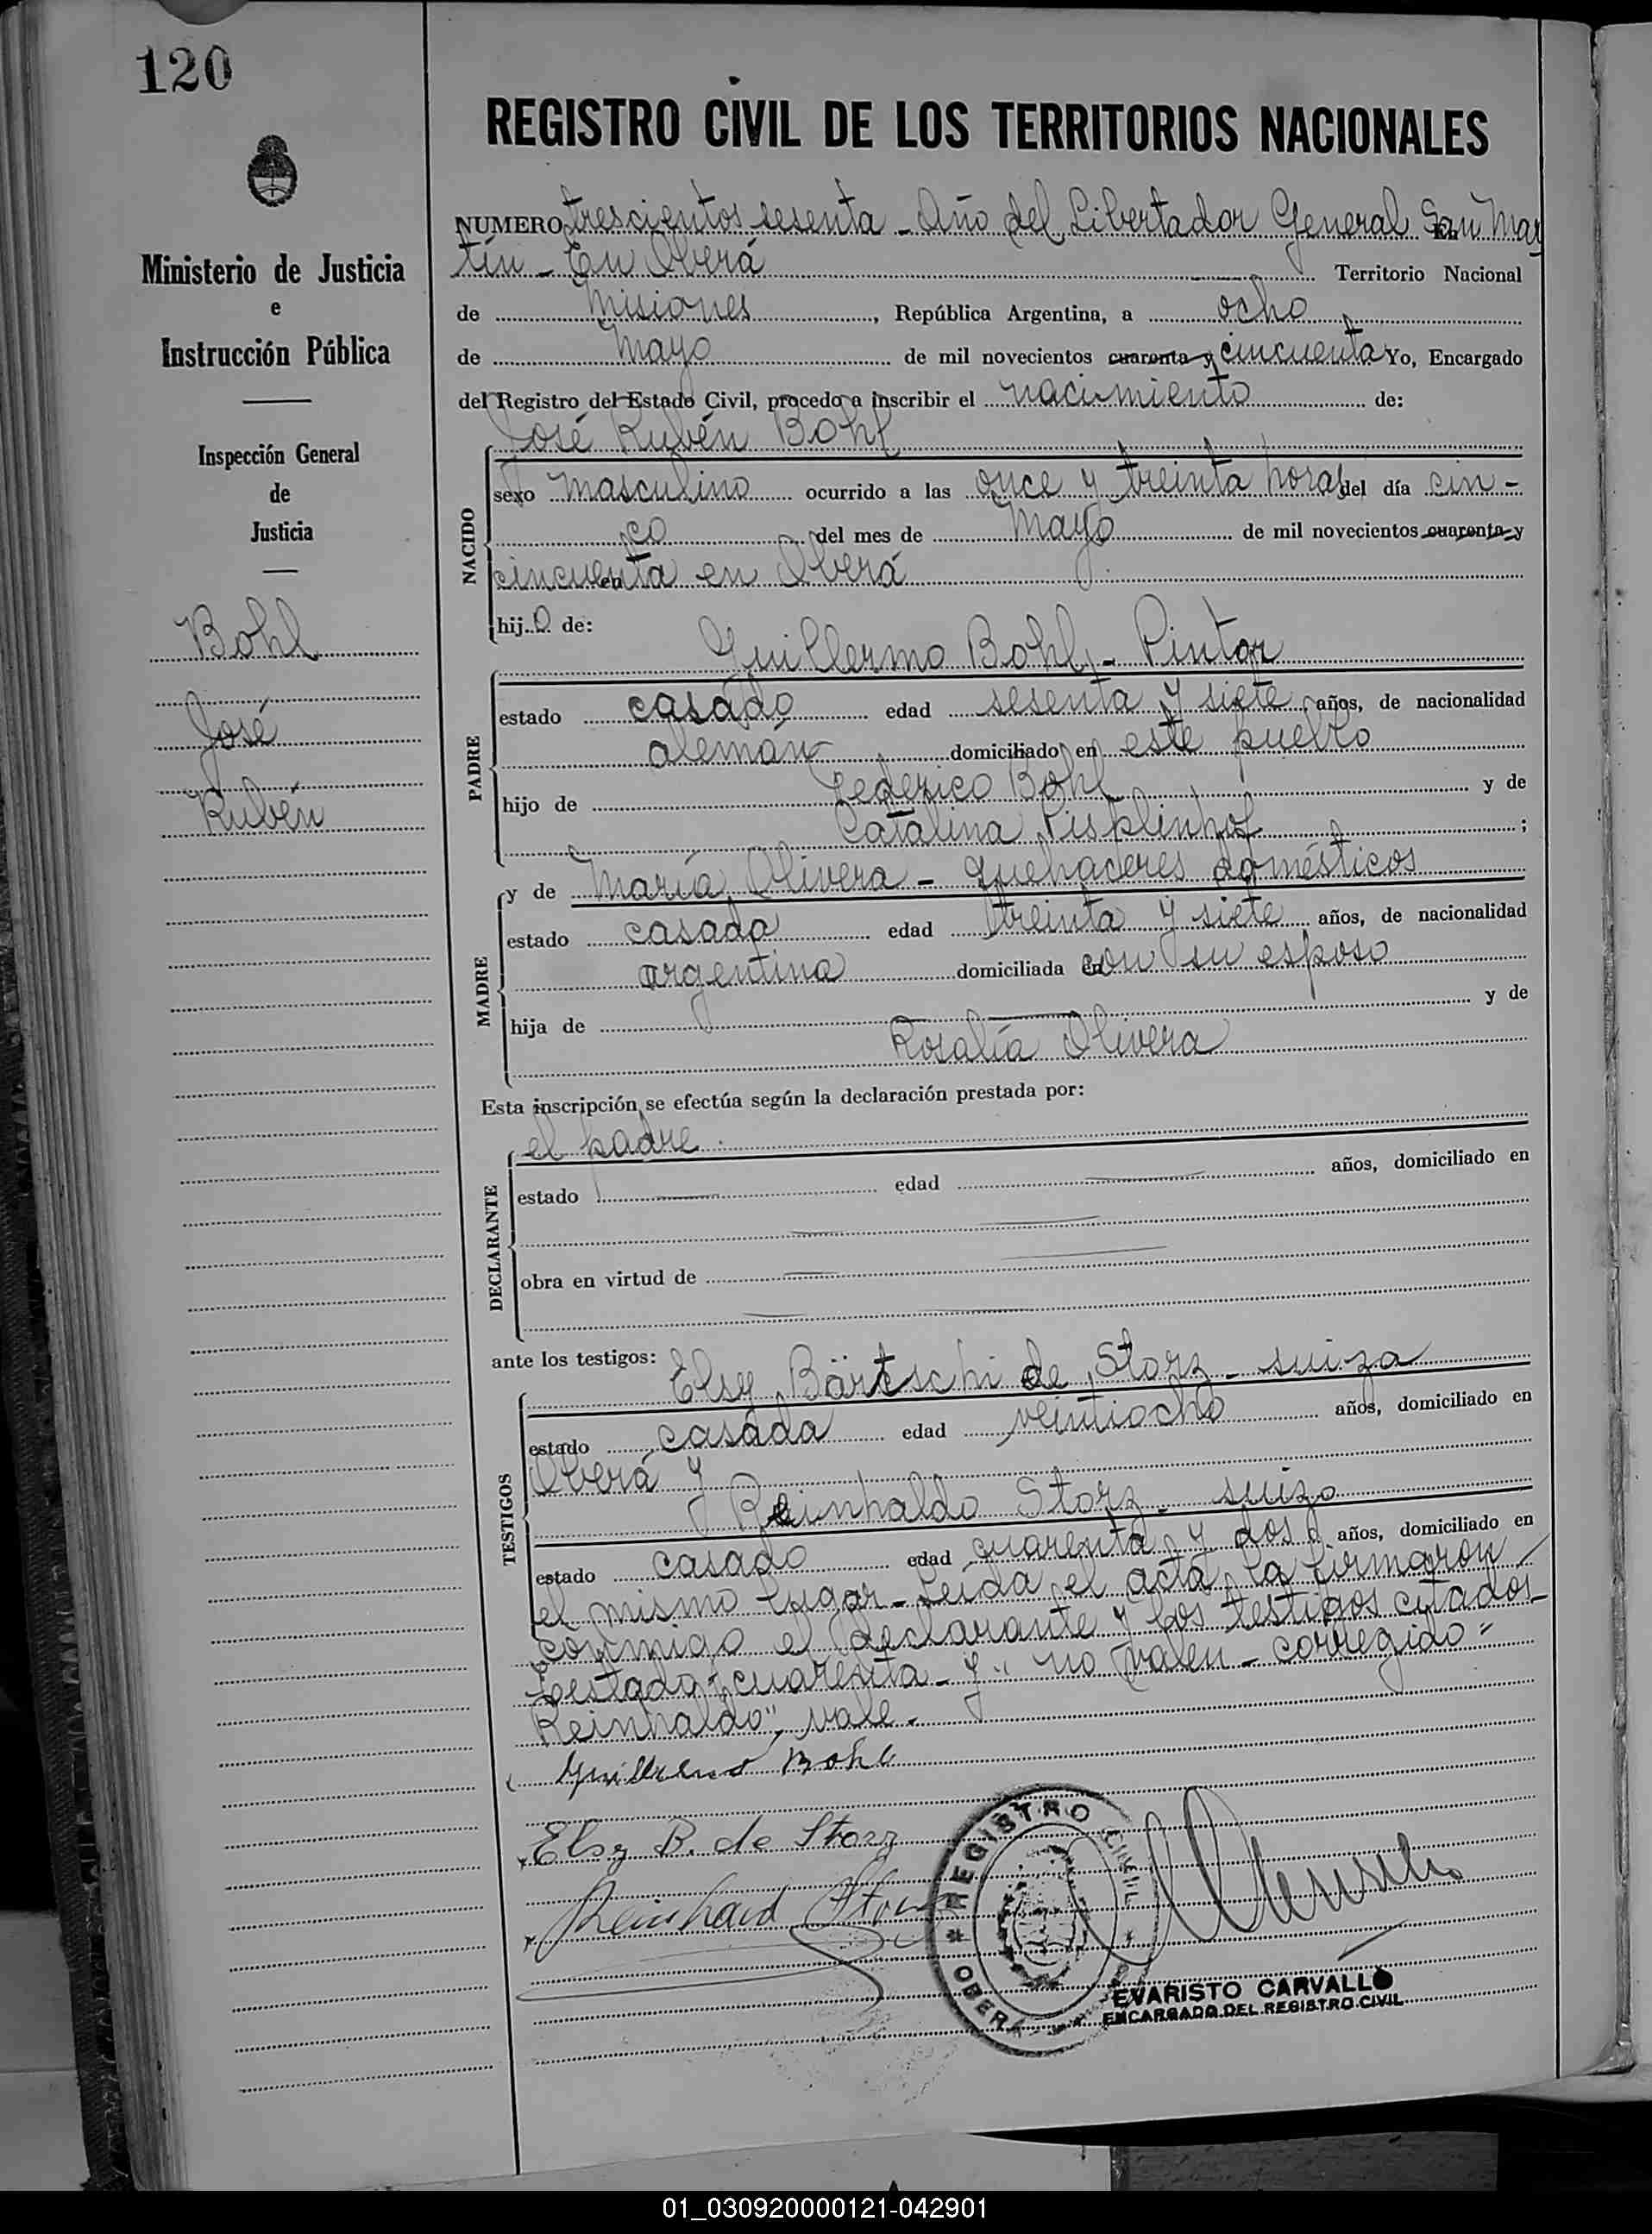 120
REGISTRO CIVIL DE LOS TERRITORIOS NACIONALES
Ministerio de Justicia
e
Instrucción Pública
Inspección General
de
Justicia
Bohl
José
Rubén
NUMERO trescientos sesenta - Año del Libertador General San Mar
tín - En Oberá Territorio Nacional
de Misiones, República Argentina, a ocho
de Mayo de mil novecientos cuarenta y cincuenta Yo, Encargado
del Registro del Estado Civil, procedo a inscribir el nacimiento de:
José Rubén Bohl
NACIDO
sexo masculino ocurrido a las once y treinta horas del día cin-
co del mes de Mayo de mil novecientos cuarenta y
cincuenta en Oberá
hijo de:
Guillermo Bohl - Pintor
PADRE
estado casado edad sesenta y siete años, de nacionalidad
alemán domiciliado en este pueblo
hijo de Federico Bohl y de
Catalina Pisplinhof;
MADRE
y de María Olivera - quehaceres domésticos
estado casada edad treinta y siete años, de nacionalidad
argentina domiciliada con su esposo
hija de y de
Rosalía Olivera
Esta inscripción se efectúa según la declaración prestada por:
el padre
DECLARANTE
estado edad años, domiciliado en
obra en virtud de
ante los testigos:
Elsy Bärtschi de Storz - suiza
TESTIGOS
estado casada edad veintiocho años, domiciliado en
Oberá y
Reinhaldo Storz - suizo
estado casado edad cuarenta y dos años, domiciliado en
el mismo lugar - Leída el acta, la firmaron
conmigo el declarante y los testigos citados -
Testado "cuarenta - y" no valen - corregido "
Reinhaldo", vale.
Guillermo Bohl
Elsy B. de Storz
Reinhard Storz
REGISTRO CIVIL
OBERA
EVARISTO CARVALLO
ENCARGADO DEL REGISTRO CIVIL
01_030920000121-042901